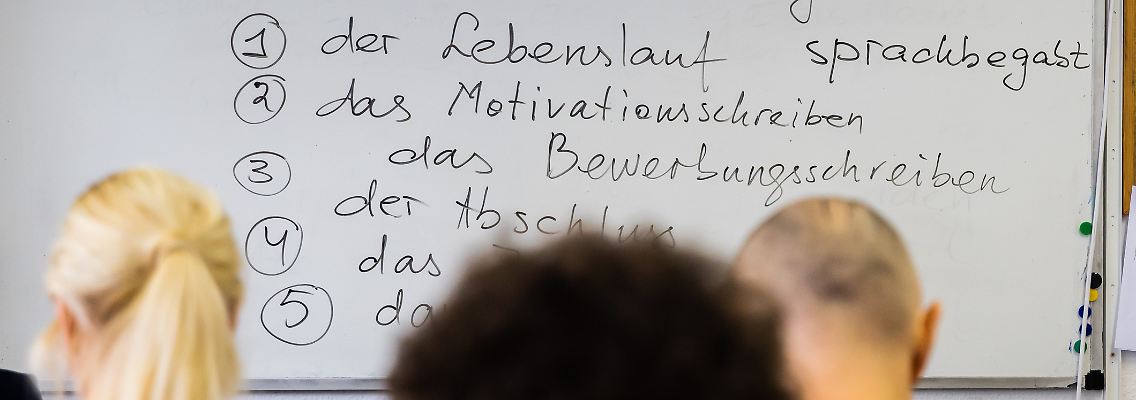 1 der Lebenslauf sprachbegabt
2 das Motivationsschreiben
das Bewerbungsschreiben
3
der Abschluss
4 das
5